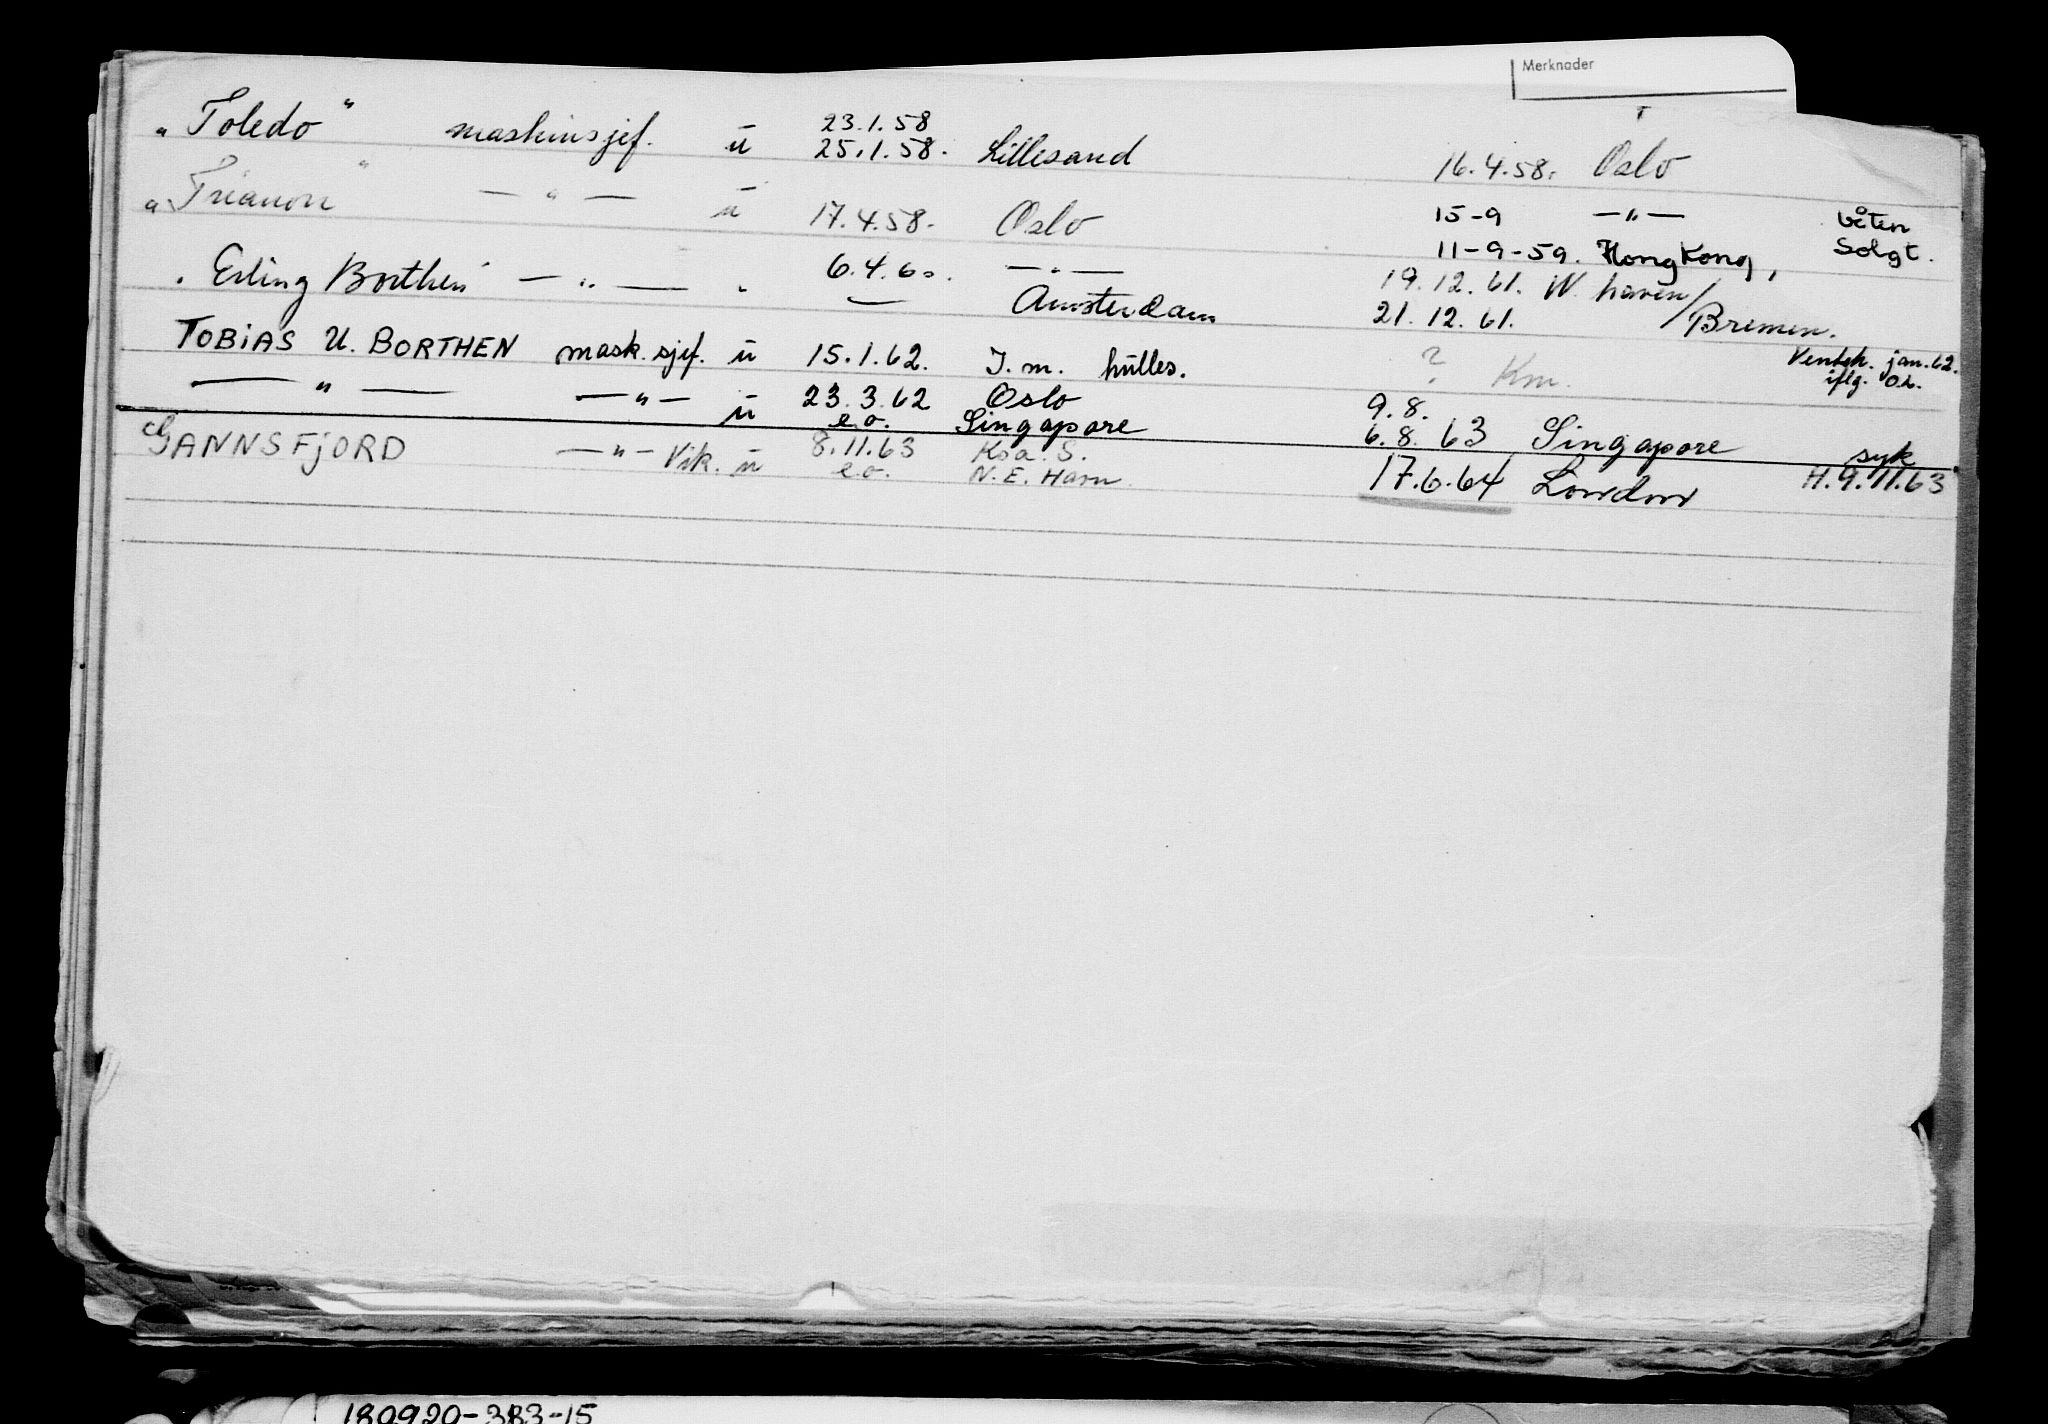 Merknader
„Toledo“ maskinsjef. ü 23.1.58 25.1.58. Lillesand 16.4.58. Oslo
„Trianon“ — " — ü 17.4.58. Oslo 15-9 — " — båten
11-9-59. HongKong, Solgt.
„Erling Borthen“ — " — " 6.4.60. — " — 19.12.61. W. haven/
— Amsterdam 21.12.61. Bremen.
TOBIAS U. BORTHEN mask.sjef. ü 15.1.62. I.m. hülles. ? Km. Ventet. jan. 62.
iflg. O.L.
— " — — " — ü 23.3.62 Oslo 9.8.
e.o. Singapore 6.8.63 Singapore syk
GANNSFJORD — " — Vik. ü 8.11.63 Koa. S. 17.6.64 London H.9.11.63
e.o. N.E. Havn
180920-383-15